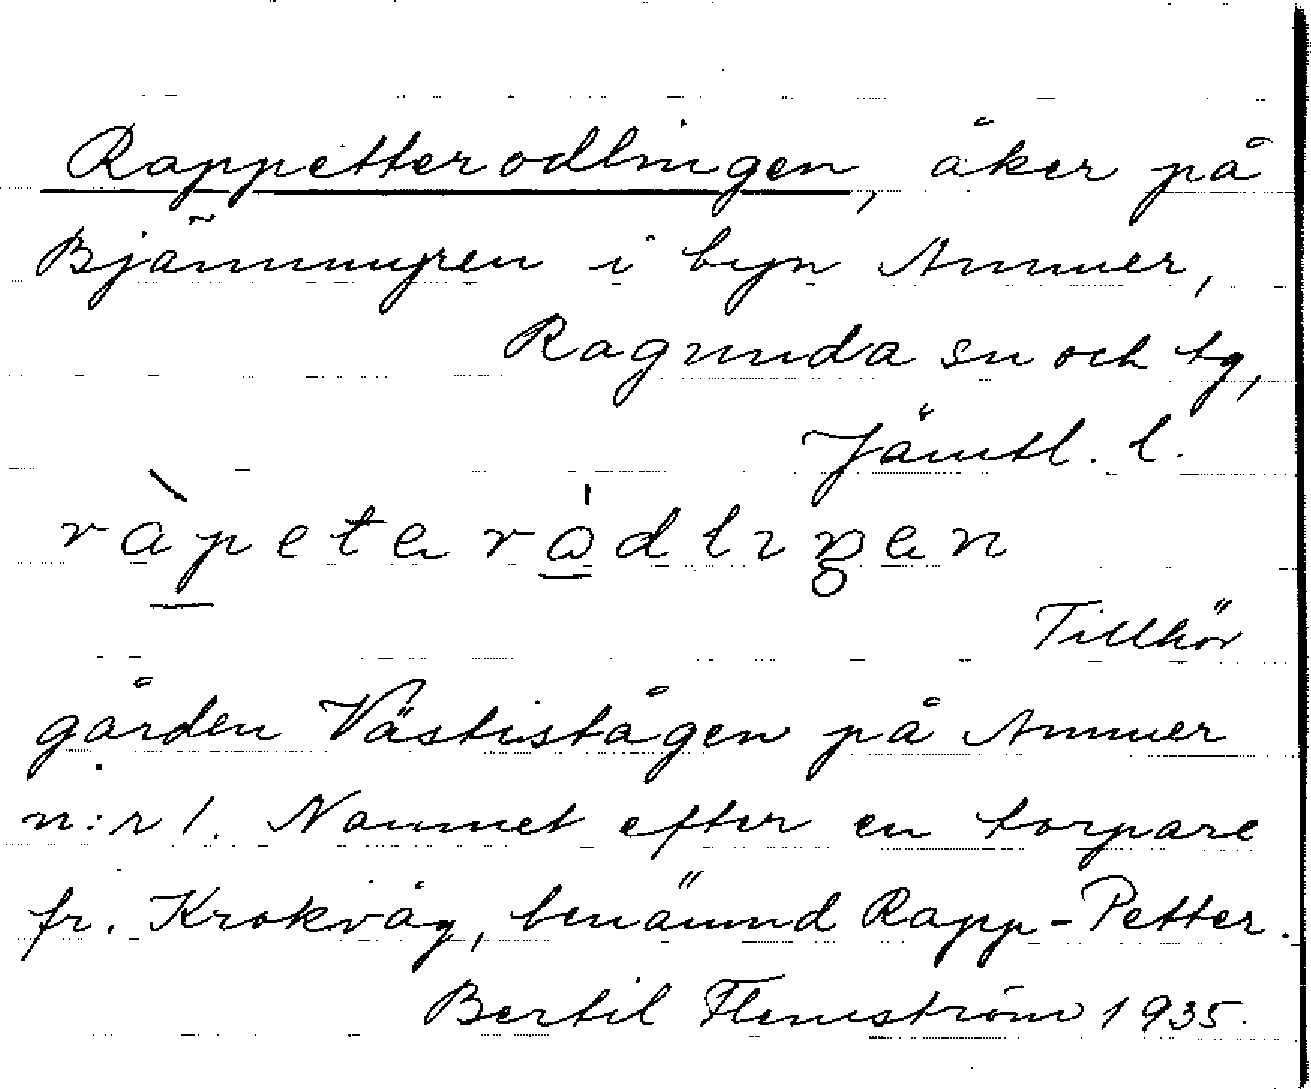 Rappetterodlingen, åker på
Björnmyren i byn Ammer,
Ragunda sn och tg,
Jämtl. l.
Tillhör
gården Västistågen på Ammer
n:r 1. Namnet efter en torpare
fr. Krokvåg, benämnd Rapp-Petter.
Bertil Flemström 1935.